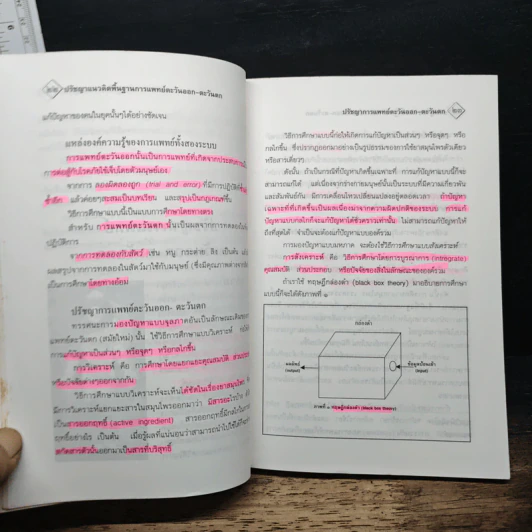 ๒๒ ปรัชญาแนวคิดพื้นฐานการแพทย์ตะวันออก-ตะวันตก
แก้ปัญหาของคนในยุคนั้นๆได้อย่างชัดเจน
แหล่งองค์ความรู้ของการแพทย์ทั้งสองระบบ
การแพทย์ตะวันออกนั้นเป็นการแพทย์ที่เกิดจากประสบ
การต่อสู้กับโรคภัยไข้เจ็บโดยตัวมนุษย์เอง
จากการ ลองผิดลองถูก (trial and error) ที่มีการปฏิบัติ
ซ้ำอีก แล้วค่อยๆสะสมเป็นบทเรียน และสรุปเป็นกฎเกณฑ์ขึ้น
วิธีการศึกษาแบบนี้เป็นแบบการศึกษาโดยทางตรง
สำหรับ การแพทย์ตะวันตกนั้นเป็นผลจากการทดลองใน
ปฏิบัติการ
จากการทดลองกับสัตว์ เช่น หนู กระต่าย ลิง เป็นต้น
ผลสรุปจากการทดลองในสัตว์มาใช้กับมนุษย์ (ซึ่งมีคุณภาพต่าง
เป็นการศึกษาโดยทางอ้อม
ปรัชญาการแพทย์ตะวันออก- ตะวันตก
ทรรศนะการมองปัญหาแบบจุลภาคอันเป็นลักษณะเด่นของ
แพทย์ตะวันตก (สมัยใหม่) นั้น ใช้วิธีการศึกษาแบบวิเคราะห์
การแก้ปัญหาเป็นส่วนๆ หรือจุดๆ หรือกลไกขึ้น
การวิเคราะห์ คือ การศึกษาโดยแยกแยะคุณสมบัติ
หรือปัจจัยต่างๆออกจากกัน
วิธีการศึกษาแบบวิเคราะห์จะเห็นได้ชัดในเรื่องยาสมุนไพร
มีการวิเคราะห์แยกแยะสารในสมุนไพรออกมาว่า มีสารอะไรบ้าง
เป็นสารออกฤทธิ์ (active ingredient) สารออกฤทธิ์มีกลไก
ฤทธิ์อย่างไร เป็นต้น เมื่อรู้ผลที่แน่นอนว่าสามารถนำไปใช้ได้
สกัดสารตัวนั้นออกมาเป็นสารที่บริสุทธิ์
ปรัชญาการแพทย์ตะวันออก-ตะวันตก ๒๓
วิธีการศึกษาแบบนี้ก่อให้เกิดการแก้ปัญหาเป็นส่วนๆ หรือจุดๆ หรือ
กลไกขึ้น ซึ่งปรากฏออกมาอย่างเป็นรูปธรรมของการใช้ยาสมุนไพรตัวเดียว
หรือสารเดี่ยวๆ
ดังนั้น ถ้าเป็นกรณีที่ปัญหาเกิดขึ้นเฉพาะที่ การแก้ปัญหาแบบนี้ก็จะ
สามารถแก้ได้ แต่เนื่องจากร่างกายมนุษย์นั้นเป็นระบบที่มีความเกี่ยวพัน
และสัมพันธ์กัน มีการเคลื่อนไหวเปลี่ยนแปลงอยู่ตลอดเวลา ถ้าปัญหา
เฉพาะที่ที่เกิดขึ้นเป็นผลเนื่องมาจากความผิดปกติของระบบฯ การแก้
ปัญหาแบบกลไกก็จะแก้ปัญหาได้ชั่วคราวเท่านั้น ไม่สามารถแก้ปัญหาให้
ถึงที่สุดได้ จำเป็นจะต้องแก้ปัญหาแบบองค์รวม
การมองปัญหาแบบมหภาค จะต้องใช้วิธีการศึกษาแบบสังเคราะห์
การสังเคราะห์ คือ วิธีการศึกษาโดยการบูรณาการ (integrate)
คุณสมบัติ ส่วนประกอบ หรือปัจจัยของสิ่งในลักษณะขององค์รวม
ถ้าเราใช้ ทฤษฎีกล่องดำ (black box theory) มาอธิบายการศึกษา
แบบนี้ก็จะได้ดังภาพที่ ๑
กล่องดำ
ผลลัพธ์
(output)
ข้อมูลป้อนเข้า
(input)
ภาพที่ ๑ ทฤษฎีกล่องดำ (black box theory)